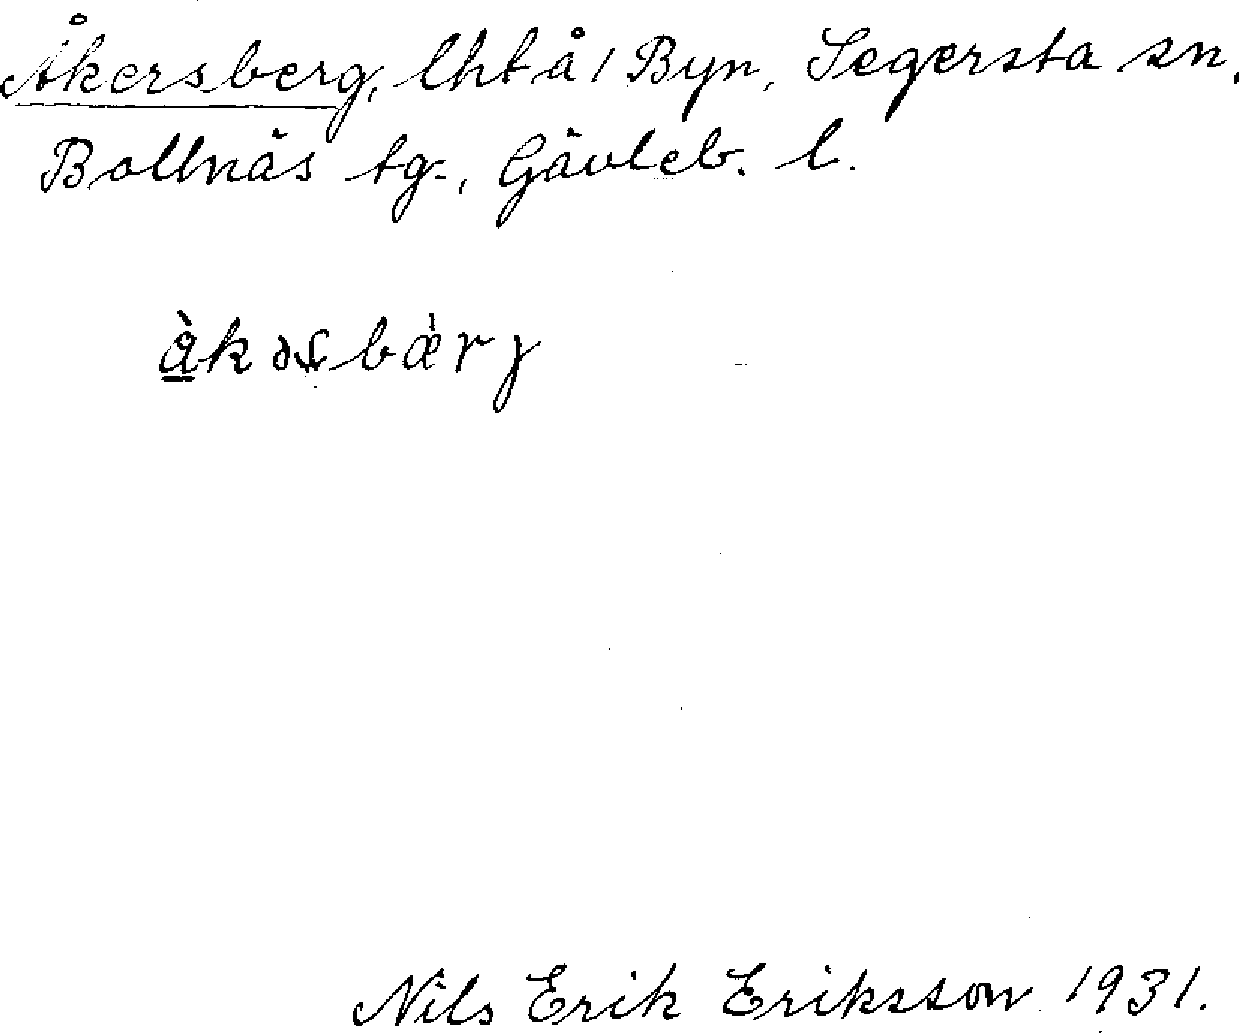 Åkersberg, lht å 1 Byn, Segersta sn,
Bollnäs tg., Gävleb. l.
Nils Erik Eriksson 1931.